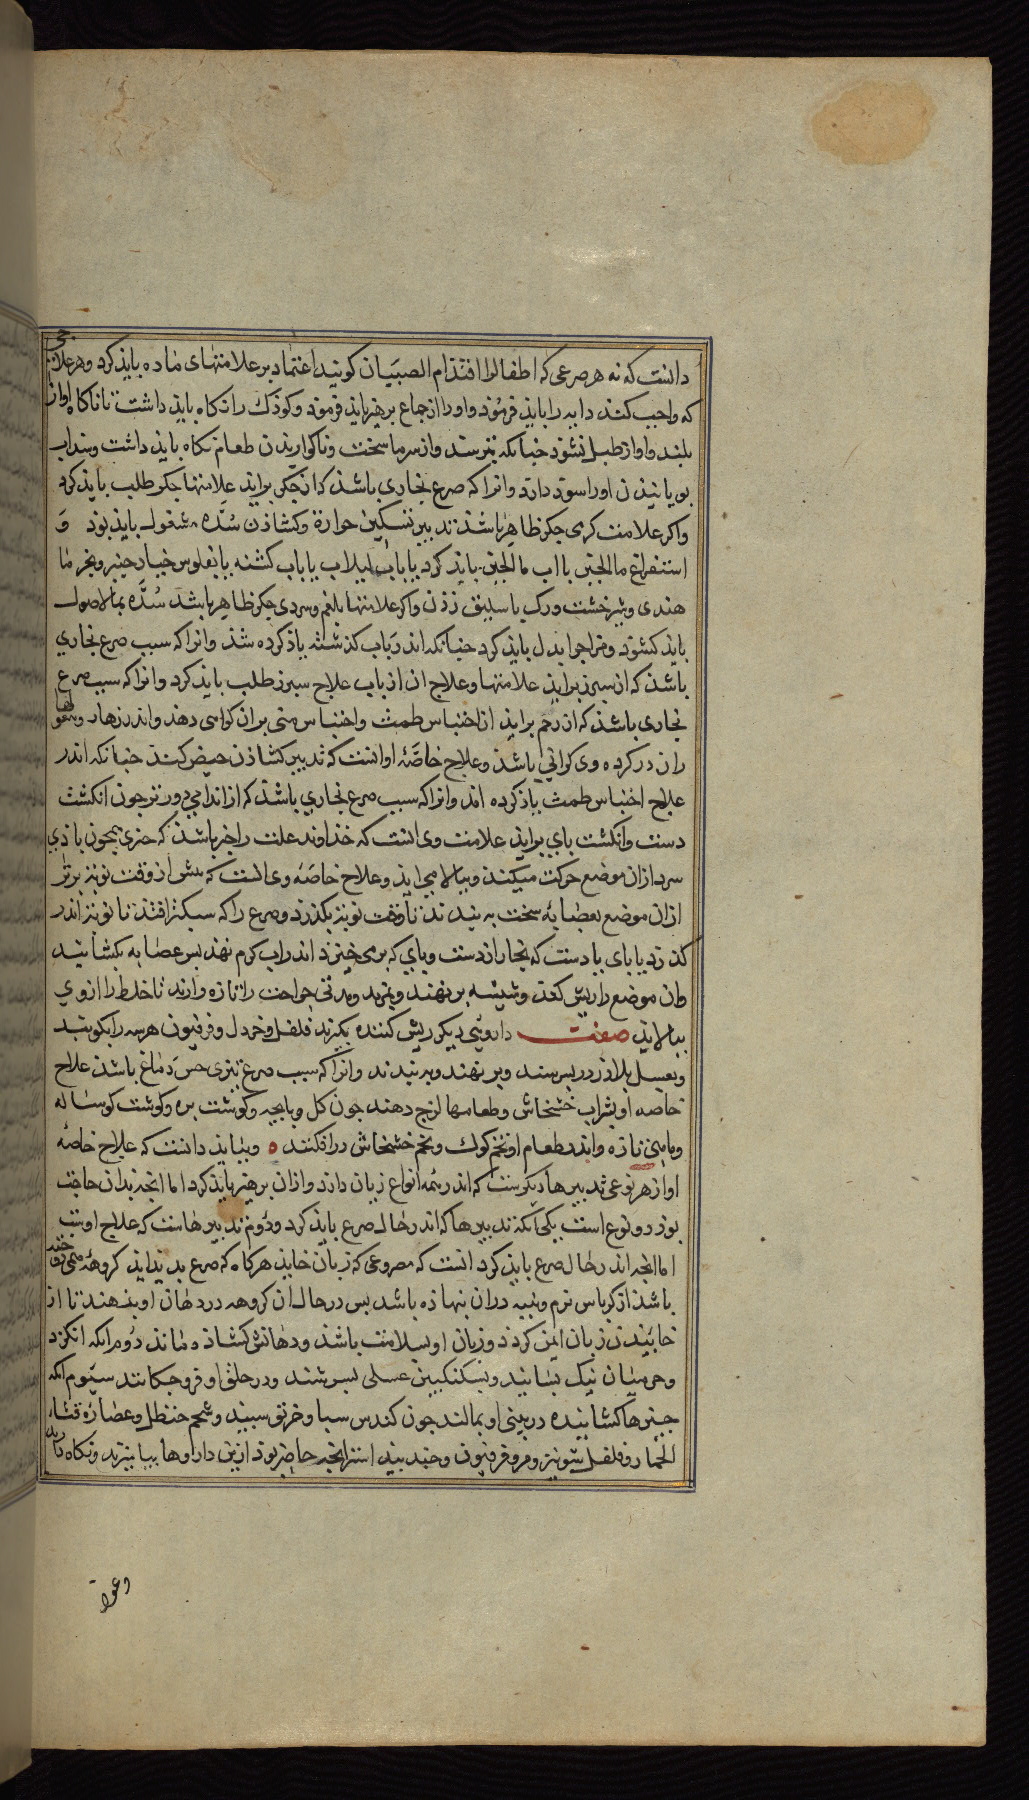 دانست که نه هر صرعی که اطفال را افتذ ام الصبیان کویند اعتماد بر علامتهای ماده بایذ کرد وهر علاجی
که واجب کند دایه را بایذ فرموذ واو را از جماع پرهیز بایذ فرموذ وکوذک را نکاه بایذ داشت تا ناکاه اواز
بلند واواز طبل نشنوذ چنانکه بترسد واز سرما سخت وناکواریدن طعام نکاه بایذ داشت وسداب
بویانیذن او را سوذ دارد وانرا که صرع بخاری باشذ که از جکر برایذ علامتها جکر طلب بایذ کرد
واکر علامت کرمی جکر ظاهر باشذ تدبیر تسکین حرارة وکشاذن سده مشغول بایذ بوذ و
استفراغ ماالجبن با اب ماالجبن بایذ کرد یا باب لبلاب یا باب کشنه یا بفلوس خیارچنبر وبخرما
هندی وشیرخشت ورک باسلیق زذن واکر علامتها بلغم وسردی جکر ظاهر باشذ سده بماالاصول
بایذ کشوذ ومزاج را بدل بایذ کرد چنانکه اندر باب کذشته یاذ کرده شذ وانرا که سبب صرع بخاری
باشذ که از سپرز برایذ علامتها وعلاج ان از باب علاج سپرز طلب بایذ کرد وانرا که سبب صرع
بخاری باشذ که از رحم برایذ از احتباس طمث واحتباس منی بران کواهی دهذ واندر زهار
ران درد کرده وی کرانی باشذ وعلاج خاصه او انست که تدبیر کشاذن حیض کنند چنانکه اندر
علاج احتباس طمث یاذ کرده اند وانرا که سبب صرع بخاری باشذ که از اندامی دورتر چون انکشت
دست وانکشت پای برایذ علامت وی انست که خذاوند علت را خبر باشذ که چیزی همچون باذی
سرد ازان موضع حرکت میکند وببالا می ایذ وعلاج خاصه وی انست که پیش از وقت نوبت برتر
ازان موضع بعصابه سخت به بندند تا وقت نوبت بکذرد وصرع را که سبکتر افتذ تا نوبت اندر
کذرد یا پای یا دست که بخار از دست وپای که برمی خیزد اندر اب کرم نهند پس عصابه بکشایند
وان موضع را ریش کنند وشیشه برنهند وبمزند ومدتی جراحت را تازه دارند تا خلط را از وی
ببالایذ صفت داروئی دیکر ریش کننده بکیرند فلفل وخردل وفرفیون هرسه را بکوبند
وبعسل بلاذر در بسرشند وبر نهند وبه بندند وانرا که سبب صرع تیزی حس دماغ باشذ علاج
خاصه او بشراب خشخاش وطعامها لزج دهند چون کله وپایچه وکوشت بره وکوشت کوساله
وماهی تازه واندر طعام او تخم کوک وتخم خشخاش درافکنند ه وببایذ دانست که علاج خاصه
او از هر نوعی تدبیرها دیکرست که اندر همه انواع زیان دارد وازان پرهیز بایذ کرد اما انچه بدان حاجت
بوذ دو نوع است یکی انکه تدبیرها که اندر حال صرع بایذ کرد ودوم تدبیرهاست که علاج اوست
اما انچه اندر حال صرع بایذ کرد انست که مصروعی که زبان خایذ هرکاه که صرع پدید ایذ کروهه
باشذ از کرباس نرم وپنبه دران نهاذه باشد پس در حال ان کروهه در دهان او بنهند تا از
خاییذن زبان ایمن کردد وزبان او بسلامت باشذ ودهانش کشاذه ماند دوم انکه انکزد
وجرمیان نیک بسایند وبسکنکبین عسلی بسرشند ودر حلق او فروچکانند سیوم انکه
چیزها کشاینده در بینی او بمالند چون کندس سیا وخربق سپید وشحم حنظل وعصاره قثاء
الحمار وفلفل شونیز ومر وفرفیون وجندبیدستر انچه حاضر بوذ ازین داروها بیامیزند ونکاه دارند
وعود